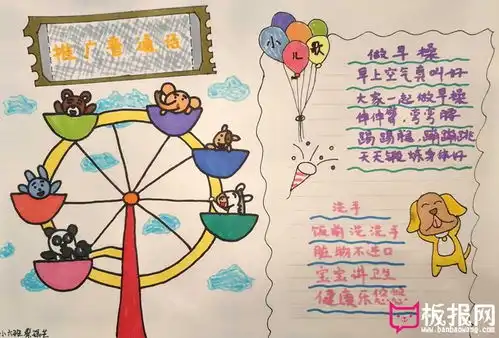 推广普通话
小儿歌
做早操
早上空气真叫好
大家一起做早操
伸伸臂,弯弯腰
踢踢腿,蹦蹦跳
天天锻炼身体好
洗手
饭前洗洗手
脏物不进口
宝宝讲卫生
健康乐悠悠
小六班
板报网
www.banbaowang.com